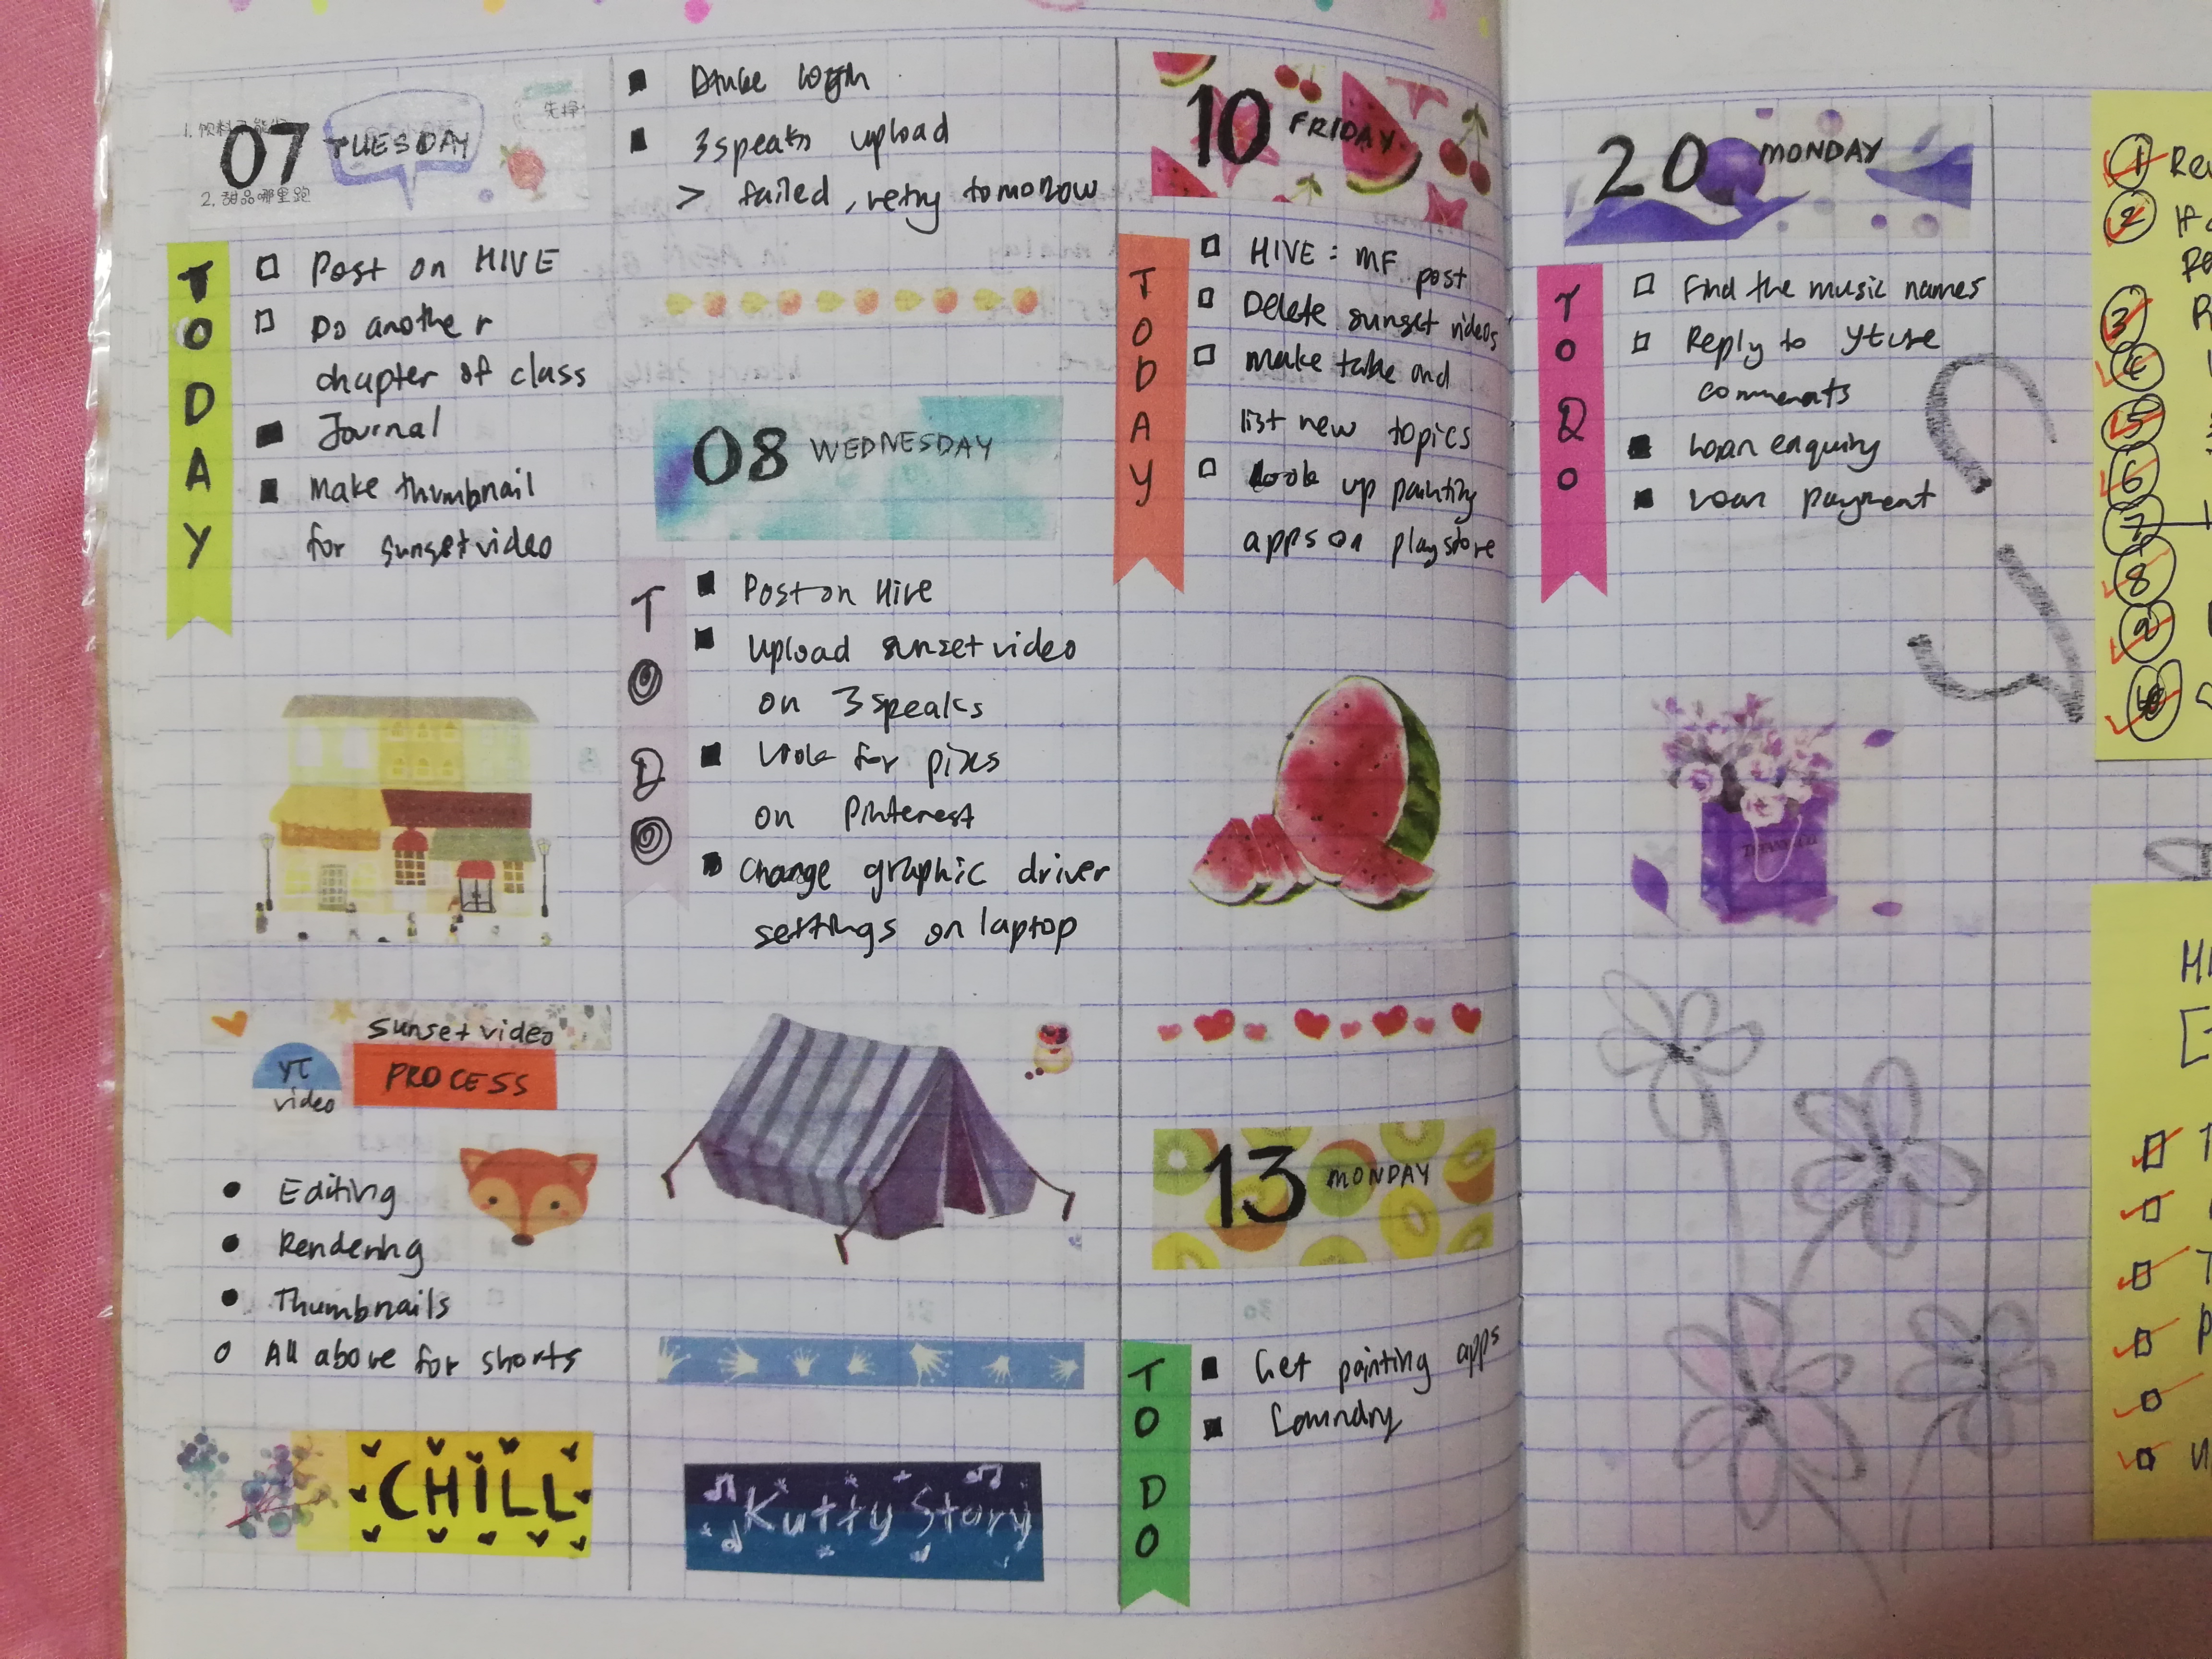 07 TUESDAY
先掙
2. 甜品哪里跑
TODAY
Post on HIVE
Do another
chapter of class
Journal
Make thumbnail
for sunset video
sunset video
YT
video
PROCESS
Editing
Rendering
Thumbnails
All above for shorts
CHILL
login
3speaks upload
> failed, retry tomorrow
08 WEDNESDAY
TO DO
Post on Hive
Upload sunset video
on 3speaks
Look for pixs
on Pinterest
Change graphic driver
settings on laptop
Kutty Story
10 FRIDAY
TODAY
HIVE: MF post
Delete sunset videos
Make table and
list new topics
Look up painting
apps on playstore
13 MONDAY
TO DO
Get painting apps
Laundry
20 MONDAY
TO DO
Find the music names
Reply to
comments
Loan enquiry
Loan payment
1
2 If
3 R
4
5
6
7
8
9